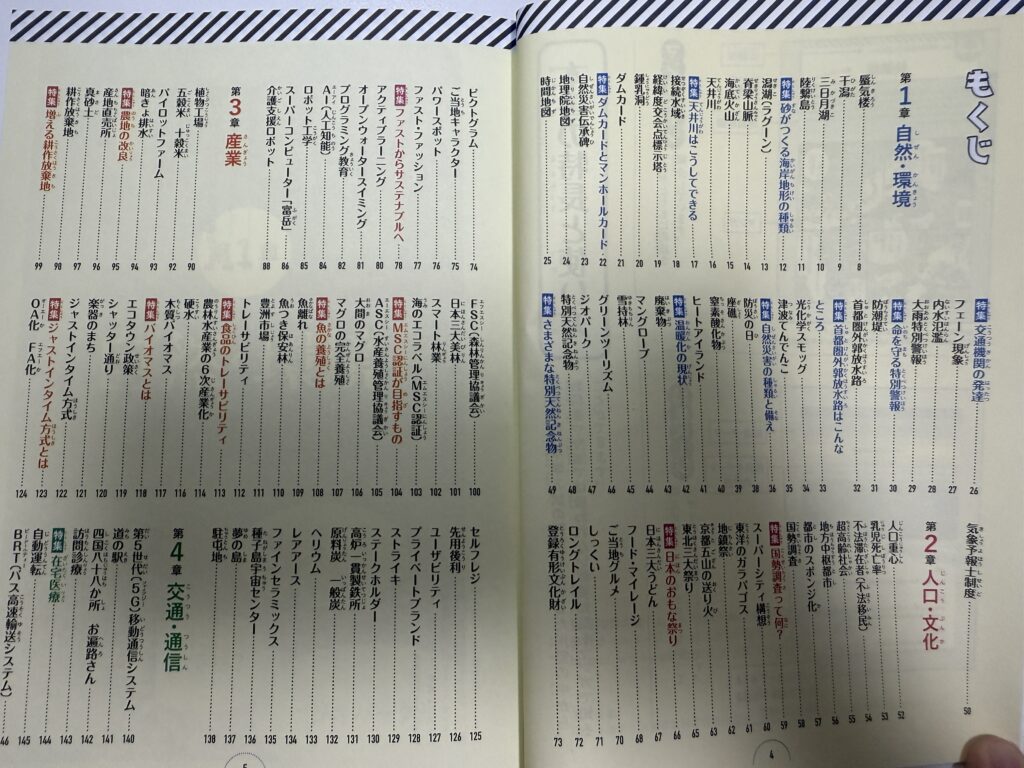 もくじ
第1章 自然・環境
蜃気楼 8
干潟 9
三日月湖 10
陸繋島 11
特集 砂がつくる海岸地形の種類 12
潟湖(ラグーン) 13
脊梁山脈 14
海底火山 15
天井川 16
特集 天井川はこうしてできる 17
接続水域 18
経緯度交会点標示塔 19
鍾乳洞 20
ダムカード 21
特集 ダムカードとマンホールカード 22
自然災害伝承碑 23
地理院地図 24
時間地図 25
特集 交通機関の発達 26
フェーン現象 27
内水氾濫 28
大雨特別警報 29
特集 命を守る特別警報 30
防潮堤 31
首都圏外郭放水路 32
特集 首都圏外郭放水路はこんなところ 33
光化学スモッグ 34
津波てんでんこ 35
特集 自然災害の種類と備え 36
防災の日 37
座礁 38
窒素酸化物 39
ヒートアイランド 40
特集 温暖化の現状 42
廃棄物 43
マングローブ 44
雪持林 45
グリーンツーリズム 46
ジオパーク 47
特別天然記念物 48
特集 さまざまな特別天然記念物 49
気象予報士制度 50
第2章 人口・文化
人口重心 52
乳児死亡率 53
不法滞在者(不法移民) 54
超高齢社会 55
地方中枢都市 56
都市のスポンジ化 57
国勢調査 58
特集 国勢調査って何? 59
スーパーシティ構想 60
東洋のガラパゴス 61
地鎮祭 62
京都五山の送り火 63
東北三大祭り 65
特集 日本のおもな祭り 66
日本三大うどん 67
フード・マイレージ 68
ご当地グルメ 70
しっくい 71
ロングトレイル 72
登録有形文化財 73
4
ピクトグラム 74
ご当地キャラクター 75
パワースポット 76
ファスト・ファッション 77
特集 ファストからサステナブルへ 78
アクティブラーニング 80
オープンウォータースイミング 81
プログラミング教育 82
AI(人工知能) 84
ロボット工学 85
スーパーコンピューター「富岳」 86
介護支援ロボット 88
第3章 産業
植物工場 90
五穀米 十穀米 92
パイロットファーム 93
暗きょ排水 94
特集 農地の改良 95
産地直売所 96
真砂土 97
耕作放棄地 98
特集 増える耕作放棄地 99
FSC(森林管理協議会) 100
日本三大美林 101
スマート林業 102
海のエコラベル(MSC認証) 103
特集 MSC認証が目指すもの 104
ASC(水産養殖管理協議会) 105
大間のマグロ 106
マグロの完全養殖 107
特集 魚の養殖とは 108
魚離れ 109
魚つき保安林 110
豊洲市場 111
トレーサビリティ 112
特集 食品のトレーサビリティ 113
農林水産業の6次産業化 114
硬水 116
木質バイオマス 117
特集 バイオマスとは 118
エコタウン政策 119
シャッター通り 120
楽器のまち 121
ジャストインタイム方式 122
特集 ジャストインタイム方式とは 123
OA化 FA化 124
セルフレジ 125
先用後利 126
ユーザビリティ 127
プライベートブランド 128
ストライキ 129
ステークホルダー 130
高炉一貫製鉄所 131
原料炭 一般炭 132
ヘリウム 133
レアアース 134
ファインセラミックス 135
種子島宇宙センター 136
夢の島 137
駐屯地 138
第4章 交通・通信
第5世代(5G)移動通信システム 140
道の駅 141
四国八十八か所 お遍路さん 142
訪問診療 143
特集 在宅医療 144
自動運転 145
BRT(バス高速輸送システム) 46
5